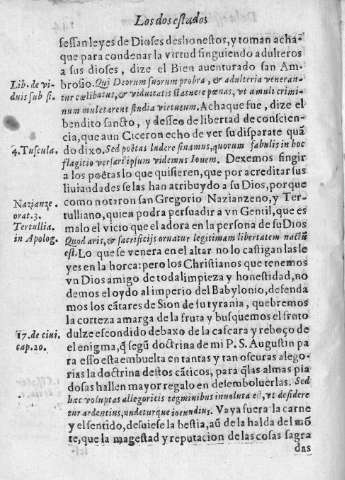 Los dos estados
fessan leyes de Dioses deshonestos, y toman acha-
que para condenas la virtud finguiendo adulteros
a sus dioses, dize el Bien auenturado san Am-
Lib. de vi- brosio. Qui Deorum suorum probra, & adulteria veneran-
duis sub fi. tur cælibatus, & viduitatis statuere pœnas, vt æmuli crimi-
num mulctarent studia virtutum. Achaque fue, dize el
bendito sancto, y desseo de libertad de conscien-
cia, que aun Ciceron echo de ver su disparate quã
4. Tuscula. do dixo. Sed poëtas ludere sinamus, quorum fabulis in hoc
flagitio versari ipsum videmus Iouem. Dexemos fingir
a los poëtas lo que quisieren, que por acreditar sus
liuiandades se las han atribuydo a su Dios, porque
Nazianze. como notaron san Gregorio Nazianzeno, y Ter-
orat. 3. tulliano, quien podra persuadir a vn Gentil, que es
Tertullia. malo el vicio que el adora en la persona de su Dios
in Apolog. Quod aris, & sacrificijs ornatur legitimam libertatem nactũ
est. Lo que se venera en el altar no lo castigan las le
yes en la horca: pero los Christianos que tenemos
vn Dios amigo de toda limpieza y honestidad, no
demos el oydo al imperio del Babylonio, defenda
mos los cãtares de Sion de su tyrania, quebremos
la corteza amarga de la fruta y busquemos el fruto
17. de ciui. dulze escondido debaxo de la cascara y reboço de
cap. 20. el enigma, q̃ segũ doctrina de mi P. S. Augustin pa
ra esso esta embuelta en tantas y tan oscuras alego-
rias la doctrina destos cãticos, para q̃ las almas pia
dosas hallen mayor regalo en desemboluerlas. Sed
hæc voluptas allegoricis tegminibus inuoluta est, vt desidere
tur ardentius, undeturque iocundius. Vaya fuera la carne
y el sentido, desuiese la bestia, aũ de la halda del mõ
te, que la magestad y reputacion de las cosas sagra
das